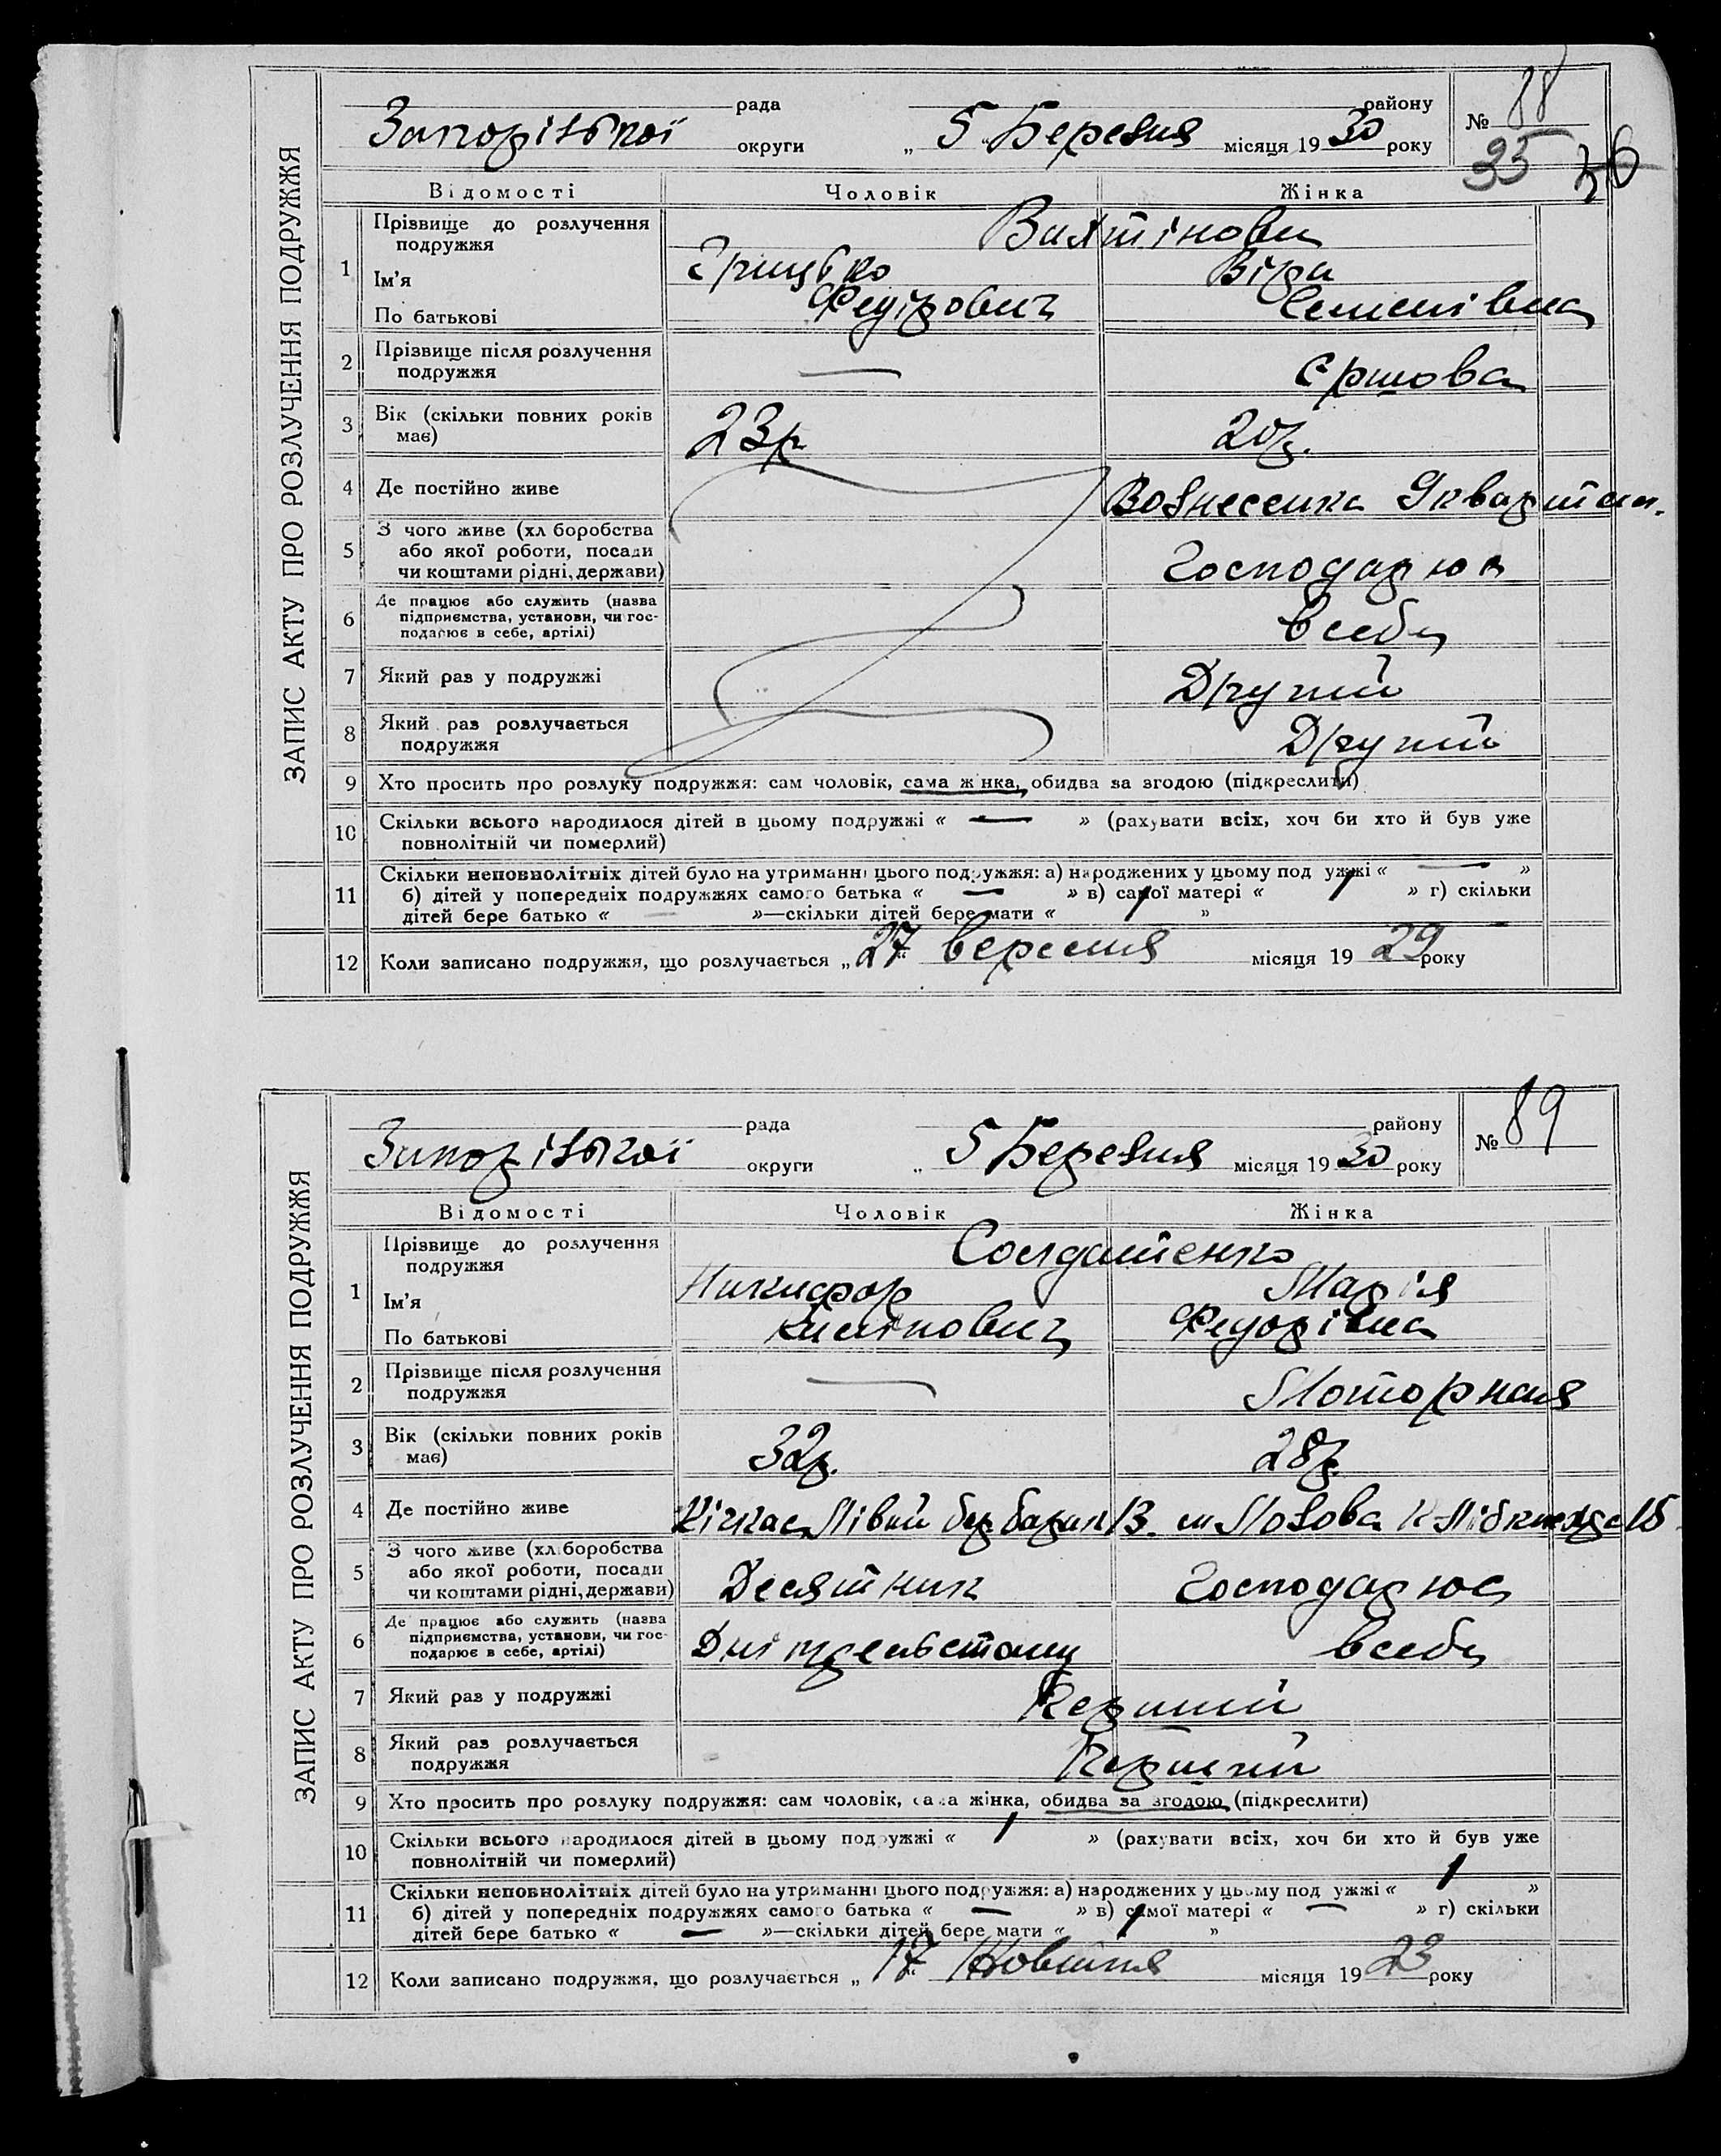 ЗАПИС АКТУ ПРО РОЗЛУЧЕННЯ ПОДРУЖЖЯ
рада району № 88
Запорізької округи „ 5 " Березня місяця 1930 року
95 36
Відомості Чоловік Жінка
1 Прізвище до розлучення подружжя
Ім'я Грицько Віра
По батькові Федірович Семенівна
2 Прізвище після розлучення подружжя — Єршова
3 Вік (скільки повних років має) 23р 20р.
4 Де постійно живе Вознесенка
5 З чого живе (хліборобства або якої роботи, посади чи коштами рідні, держави) Господарює
6 Де працює або служить (назва підприємства, установи, чи господарює в себе, артілі) в себе
7 Який раз у подружжі Другий
8 Який раз розлучається подружжя Другий
9 Хто просить про розлуку подружжя: сам чоловік, сама жінка, обидва за згодою (підкреслити)
10 Скільки всього народилося дітей в цьому подружжі « — » (рахувати всіх, хоч би хто й був уже
повнолітній чи померлий)
11 Скільки неповнолітніх дітей було на утриманні цього подружжя: а) народжених у цьому подружжі « — »
б) дітей у попередніх подружжях самого батька « — » в) самої матері « 1 » г) скільки
дітей бере батько « — »—скільки дітей бере мати « 1 »
12 Коли записано подружжя, що розлучається „ 27 " вересня місяця 1929 року
ЗАПИС АКТУ ПРО РОЗЛУЧЕННЯ ПОДРУЖЖЯ
рада району № 89
Запорізької округи „ 5 Березня місяця 1930 року
Відомості Чоловік Жінка
1 Прізвище до розлучення подружжя Солдатенко
Ім'я Никифор Марія
По батькові Федорівна
2 Прізвище після розлучення подружжя — Моторная
3 Вік (скільки повних років має) 32р. 28р
4 Де постійно живе Кічкас Лівий бер барак 13.
5 З чого живе (хліборобства або якої роботи, посади чи коштами рідні, держави) Десятник Господарює
6 Де працює або служить (назва підприємства, установи, чи господарює в себе, артілі) Дніпрельстану в себе
7 Який раз у подружжі Перший
8 Який раз розлучається подружжя Перший
9 Хто просить про розлуку подружжя: сам чоловік, сама жінка, обидва за згодою (підкреслити)
10 Скільки всього народилося дітей в цьому подружжі « 1 » (рахувати всіх, хоч би хто й був уже
повнолітній чи померлий)
11 Скільки неповнолітніх дітей було на утриманні цього подружжя: а) народжених у цьому подружжі « 1 »
б) дітей у попередніх подружжях самого батька « — » в) самої матері « — » г) скільки
дітей бере батько « — »—скільки дітей бере мати « 1 »
12 Коли записано подружжя, що розлучається „ 17 " Жовтня місяця 1923 року